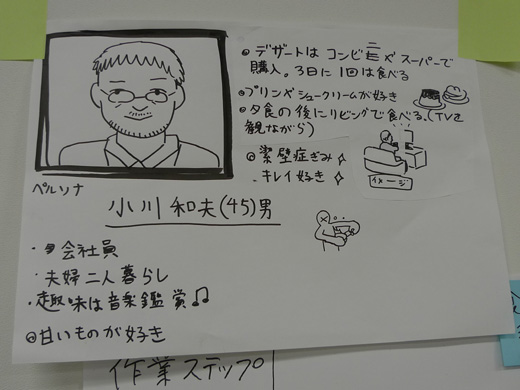 ペルソナ
小川 和夫(45)男
・会社員
・夫婦二人暮らし
・趣味は音楽鑑賞♫
◎甘いものが好き
◎デザートはコンビニやスーパーで
購入。3日に1回は食べる
◎プリンやシュークリームが好き
◎夕食の後にリビングで食べる。(TVを
観ながら)
◎潔壁症ぎみ
キレイ好き
イメージ
作業ステップ